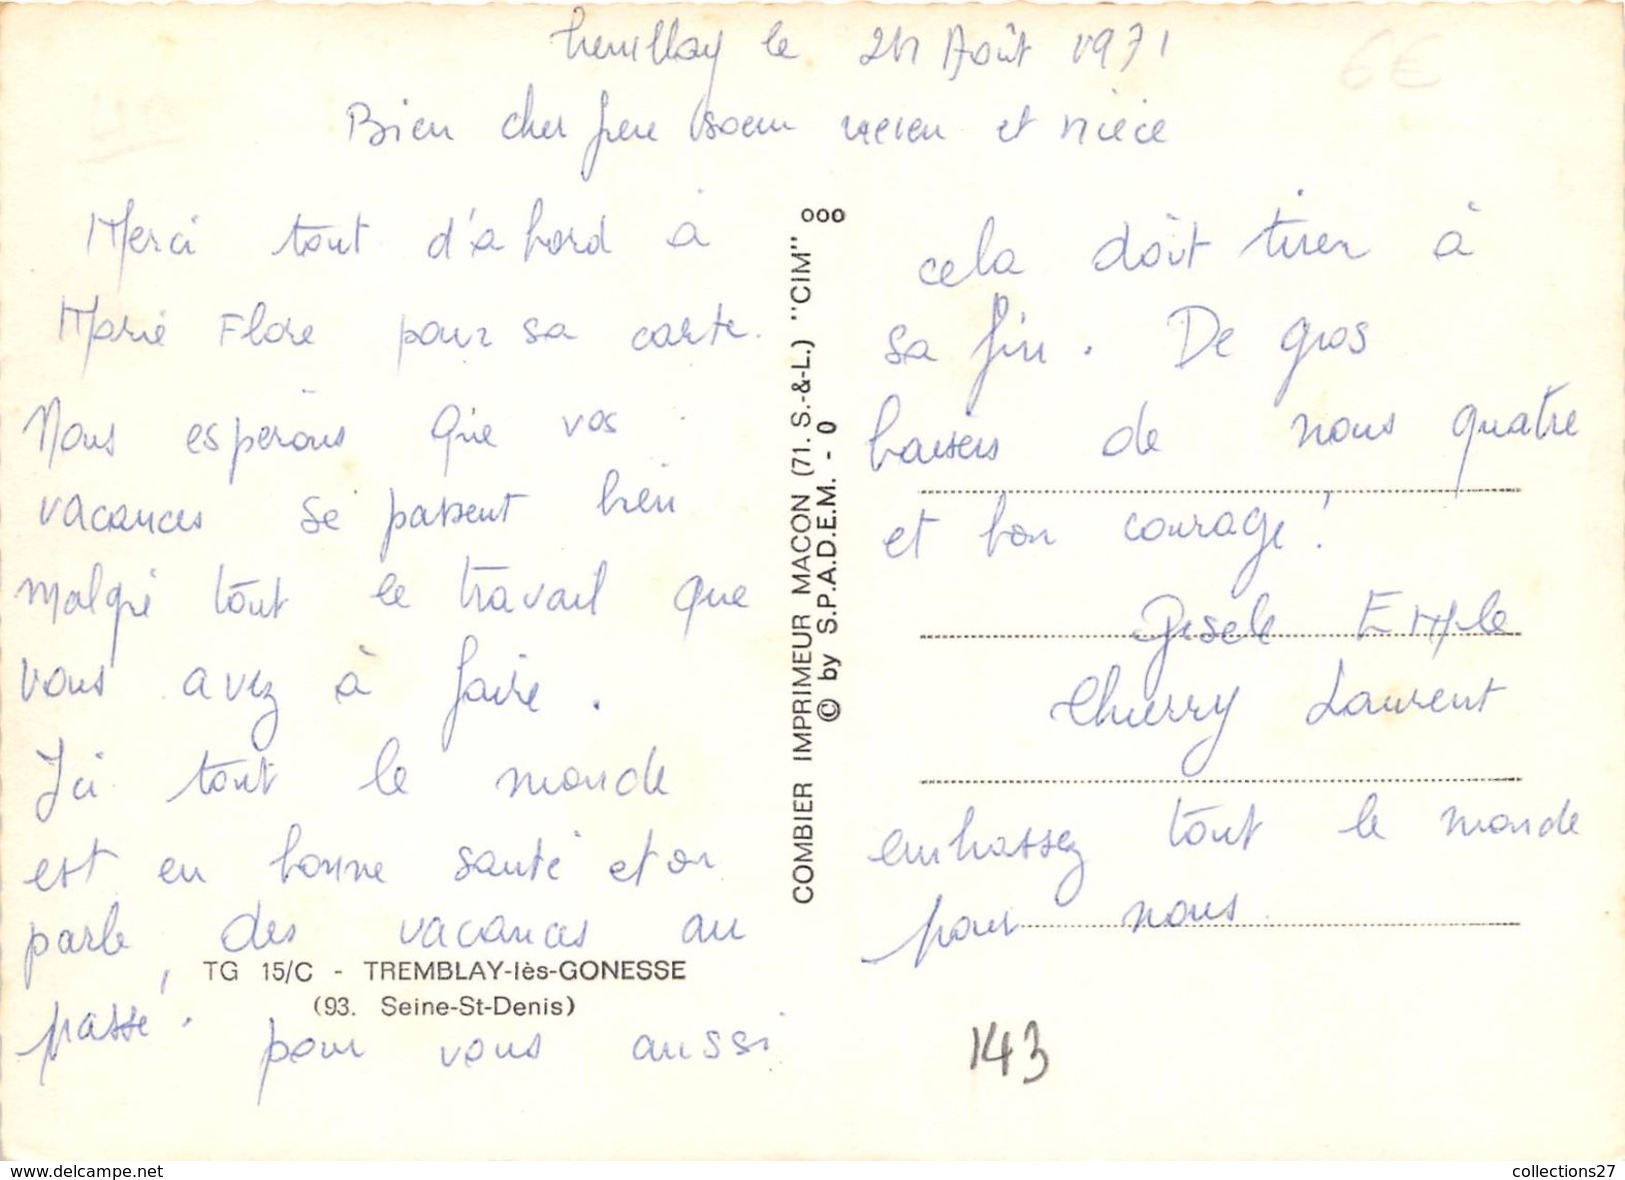 Tremblay le 24 Août 1971
Bien cher frere soeur neveu et niece
Merci tout d'abord à
Marie Flore pour sa carte.
Nous espérons que vos
vacances se passent bien
malgré tout le travail que
vous avez à faire.
Ici tout le monde
est en bonne santé et on
parle des vacances au
passé. pour vous aussi
TG 15/C - TREMBLAY-lès-GONESSE
(93. Seine-St-Denis)
COMBIER IMPRIMEUR MACON (71. S.-&-L.) "CIM"
© by S.P.A.D.E.M. - 0
ooo
o
cela doit tirer à
sa fin. De gros
baisers de nous quatre
et bon courage!
Gisele Emile
Thierry Laurent
embrassez tout le monde
pour nous
143
6€
www.delcampe.net
collections27